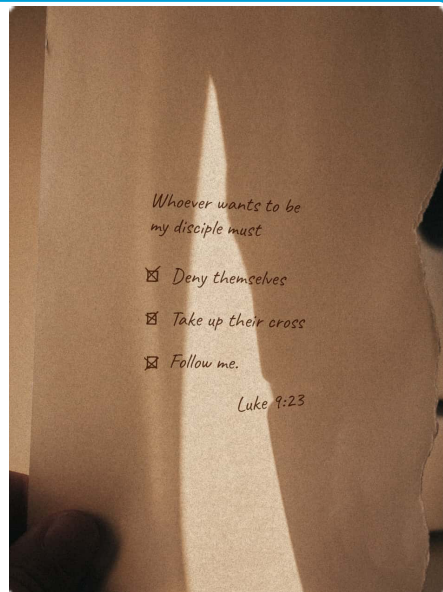 Whoever wants to be
my disciple must
☒ Deny themselves
☒ Take up their cross
☒ Follow me.
Luke 9:23